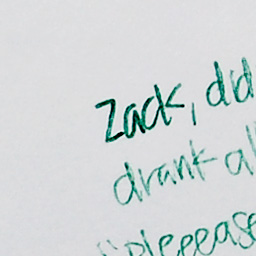 Zack, did
drank al
"pleeease